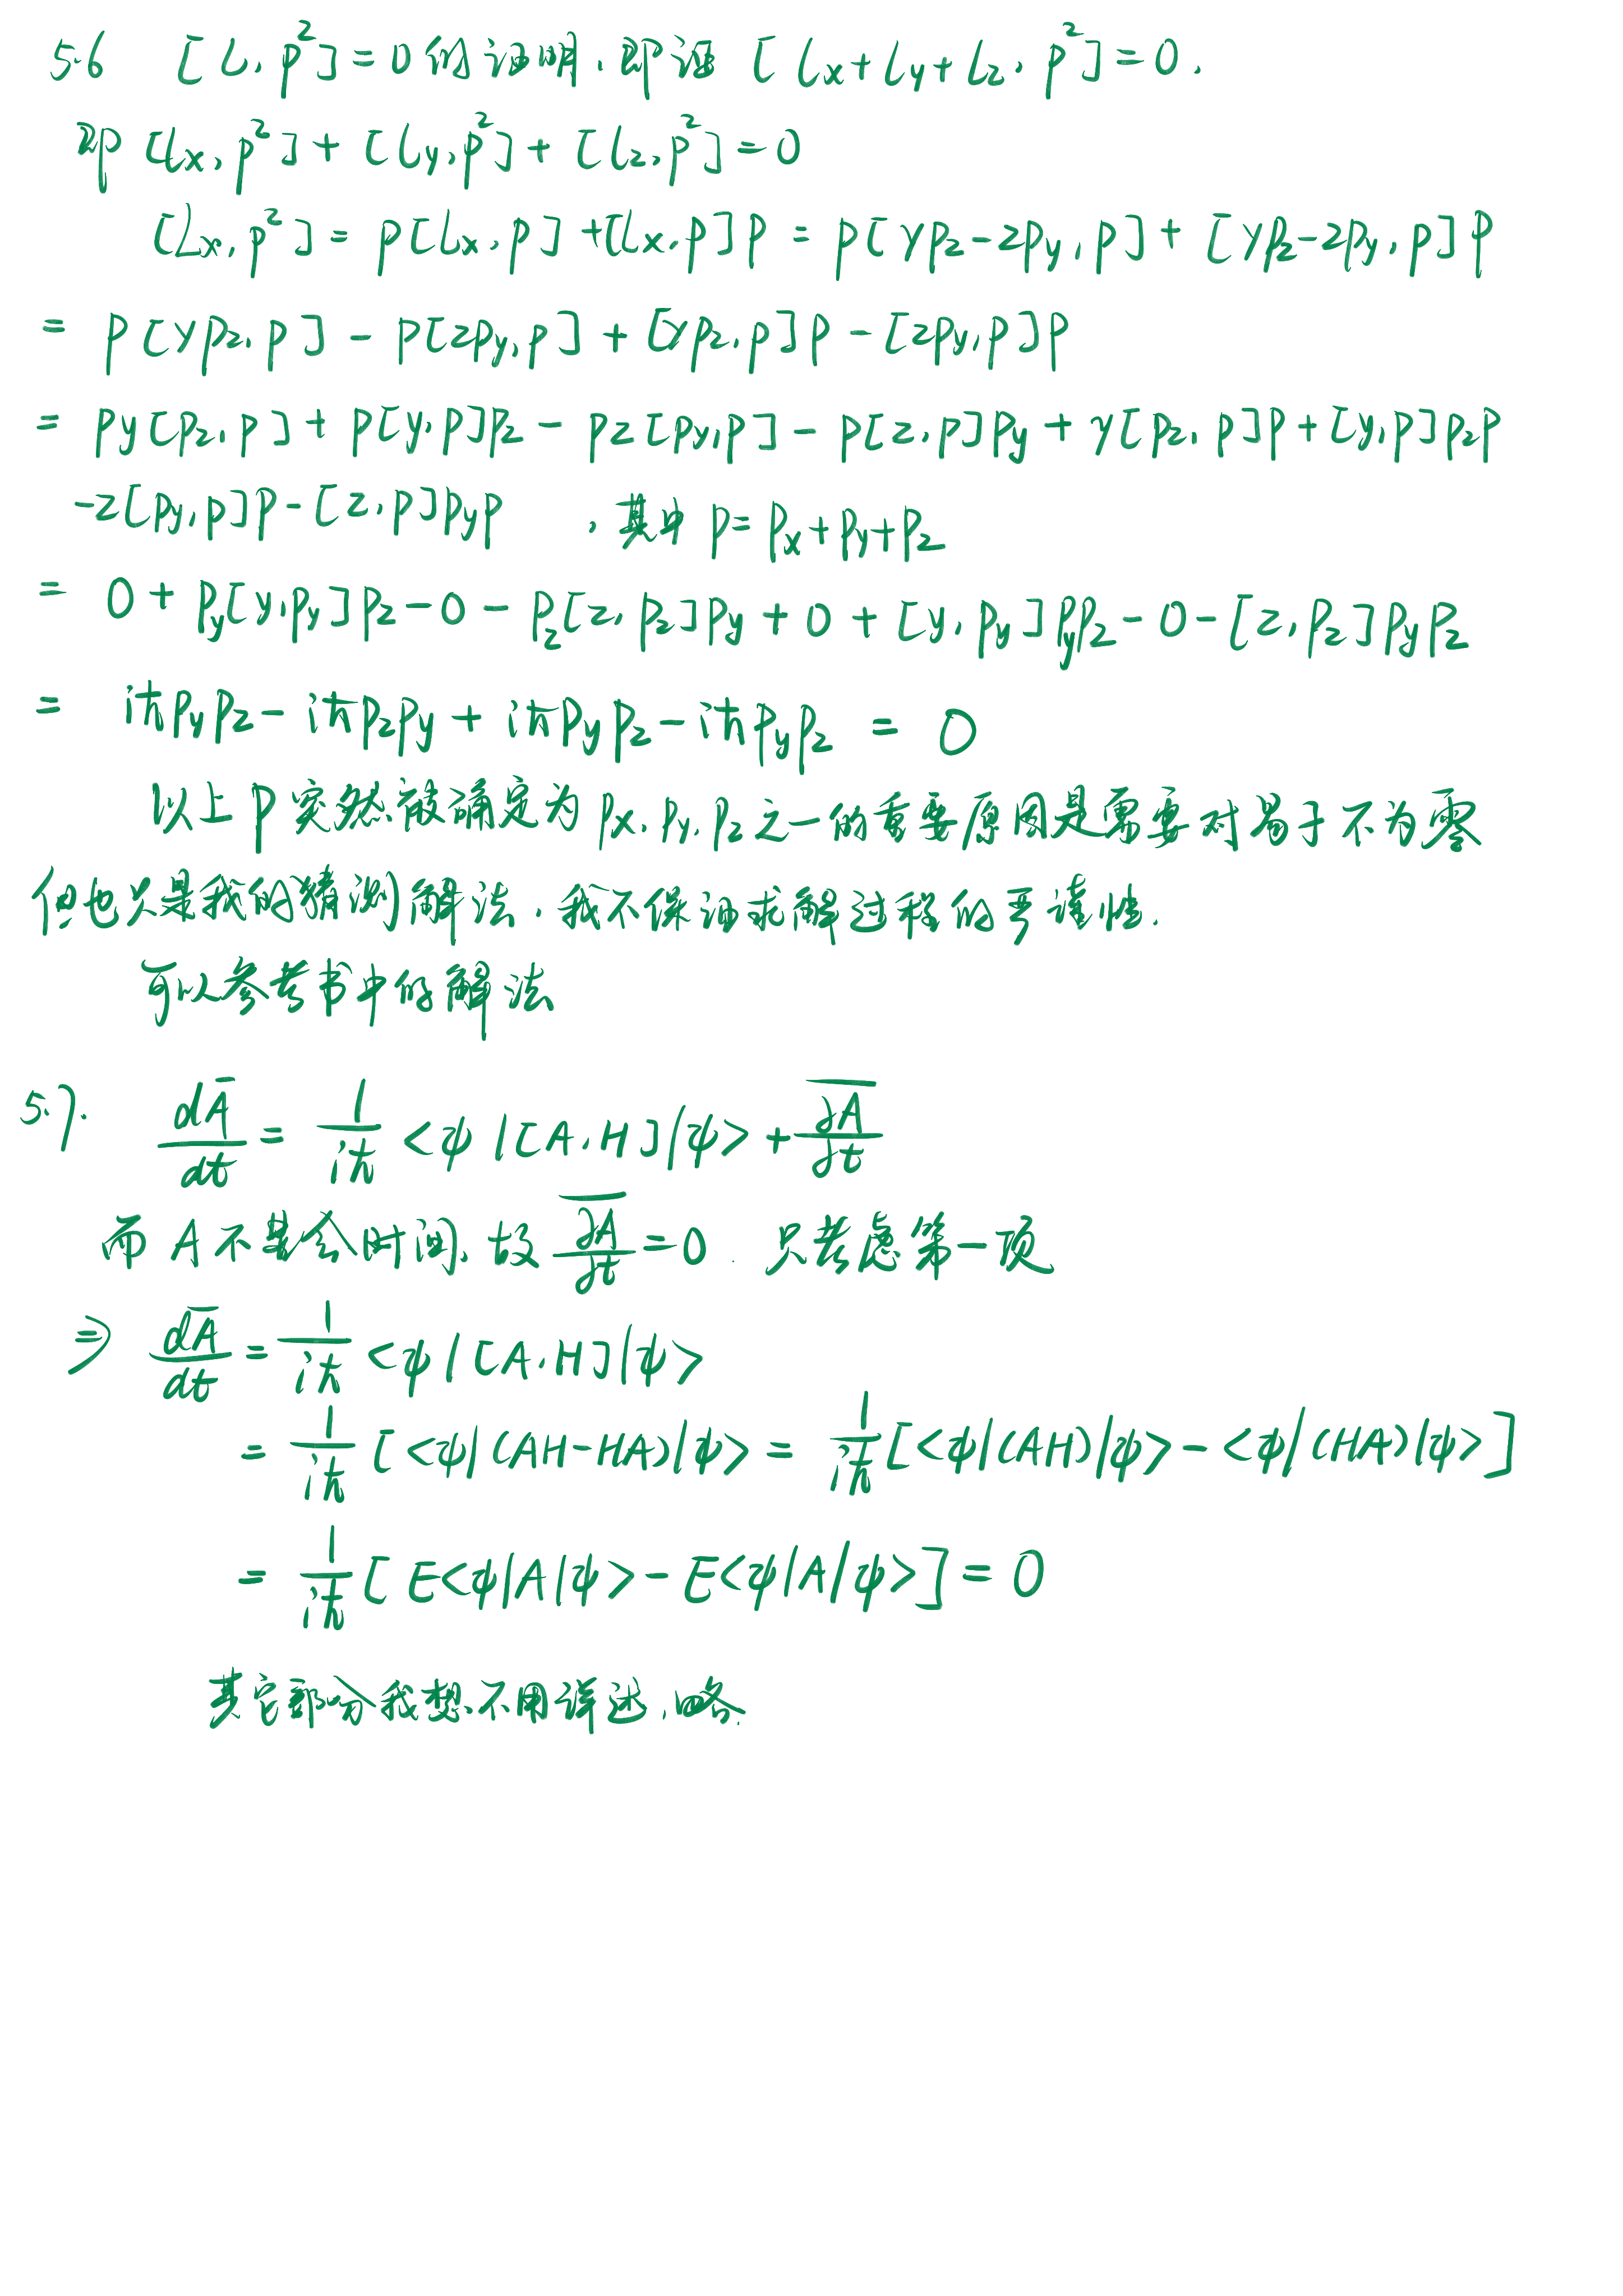 5.6 [L, p²]=0的证明,即证 [Lx+Ly+Lz, p²]=0.
即 [Lx, p²]+[Ly, p²]+[Lz, p²]=0
[Lx, p²]= p[Lx, p]+[Lx, p]p = p[ypz-zpy, p]+[ypz-zpy, p]p
= p[ypz, p]-p[zpy, p]+[ypz, p]p-[zpy, p]p
= py[pz, p]+p[y, p]pz-pz[py, p]-p[z, p]py+y[pz, p]p+[y, p]pzp
-z[py, p]p-[z, p]pyp ,其中 p=px+py+pz
= 0+py[y, py]pz-0-pz[z, pz]py+0+[y, py]pypz-0-[z, pz]pypz
= iħpypz-iħpzpy+iħpypz-iħpypz = 0
以上p突然被确定为px, py, pz之一的重要原因是需要对易子不为零
但也只是我的猜测解法,我不保证求解过程的严谨性.
可以参考书中的解法
5.7. dĀ/dt = 1/iħ <ψ|[A, H]|ψ> + \overline{∂A/∂t}
而A不显含时间,故 \overline{∂A/∂t}=0 . 只考虑第一项
⇒ dĀ/dt = 1/iħ <ψ|[A, H]|ψ>
= 1/iħ [<ψ|(AH-HA)|ψ> = 1/iħ [<ψ|(AH)|ψ>-<ψ|(HA)|ψ>]
= 1/iħ [E<ψ|A|ψ>-E<ψ|A|ψ>]=0
其它部分我想不用详述,略.